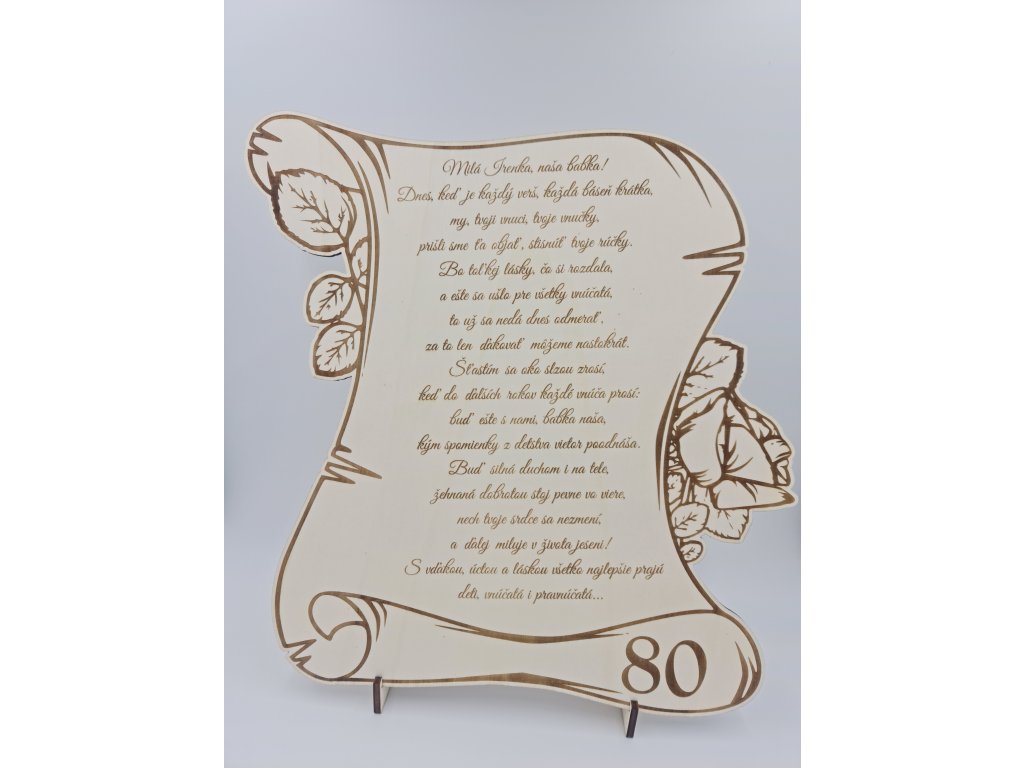 Milá Irenka, naša babka!
Dnes, keď je každý verš, každá báseň krátka,
my, tvoji vnuci, tvoje vnučky,
prišli sme ťa objať, stisnúť tvoje rúčky.
Bo toľkej lásky, čo si rozdala,
a ešte sa ušlo pre všetky vnúčatá,
to už sa nedá dnes odmerať,
za to len ďakovať môžeme nastokrát.
Šťastím sa oko slzou zrosí,
keď do ďalších rokov každé vnúča prosí:
buď ešte s nami, babka naša,
kým spomienky z detstva vietor poodnáša.
Buď silná duchom i na tele,
žehnaná dobrotou stoj pevne vo viere,
nech tvoje srdce sa nezmení,
a ďalej miluje v života jeseni!
S vďakou, úctou a láskou všetko najlepšie prajú
deti, vnúčatá i pravnúčatá...
80